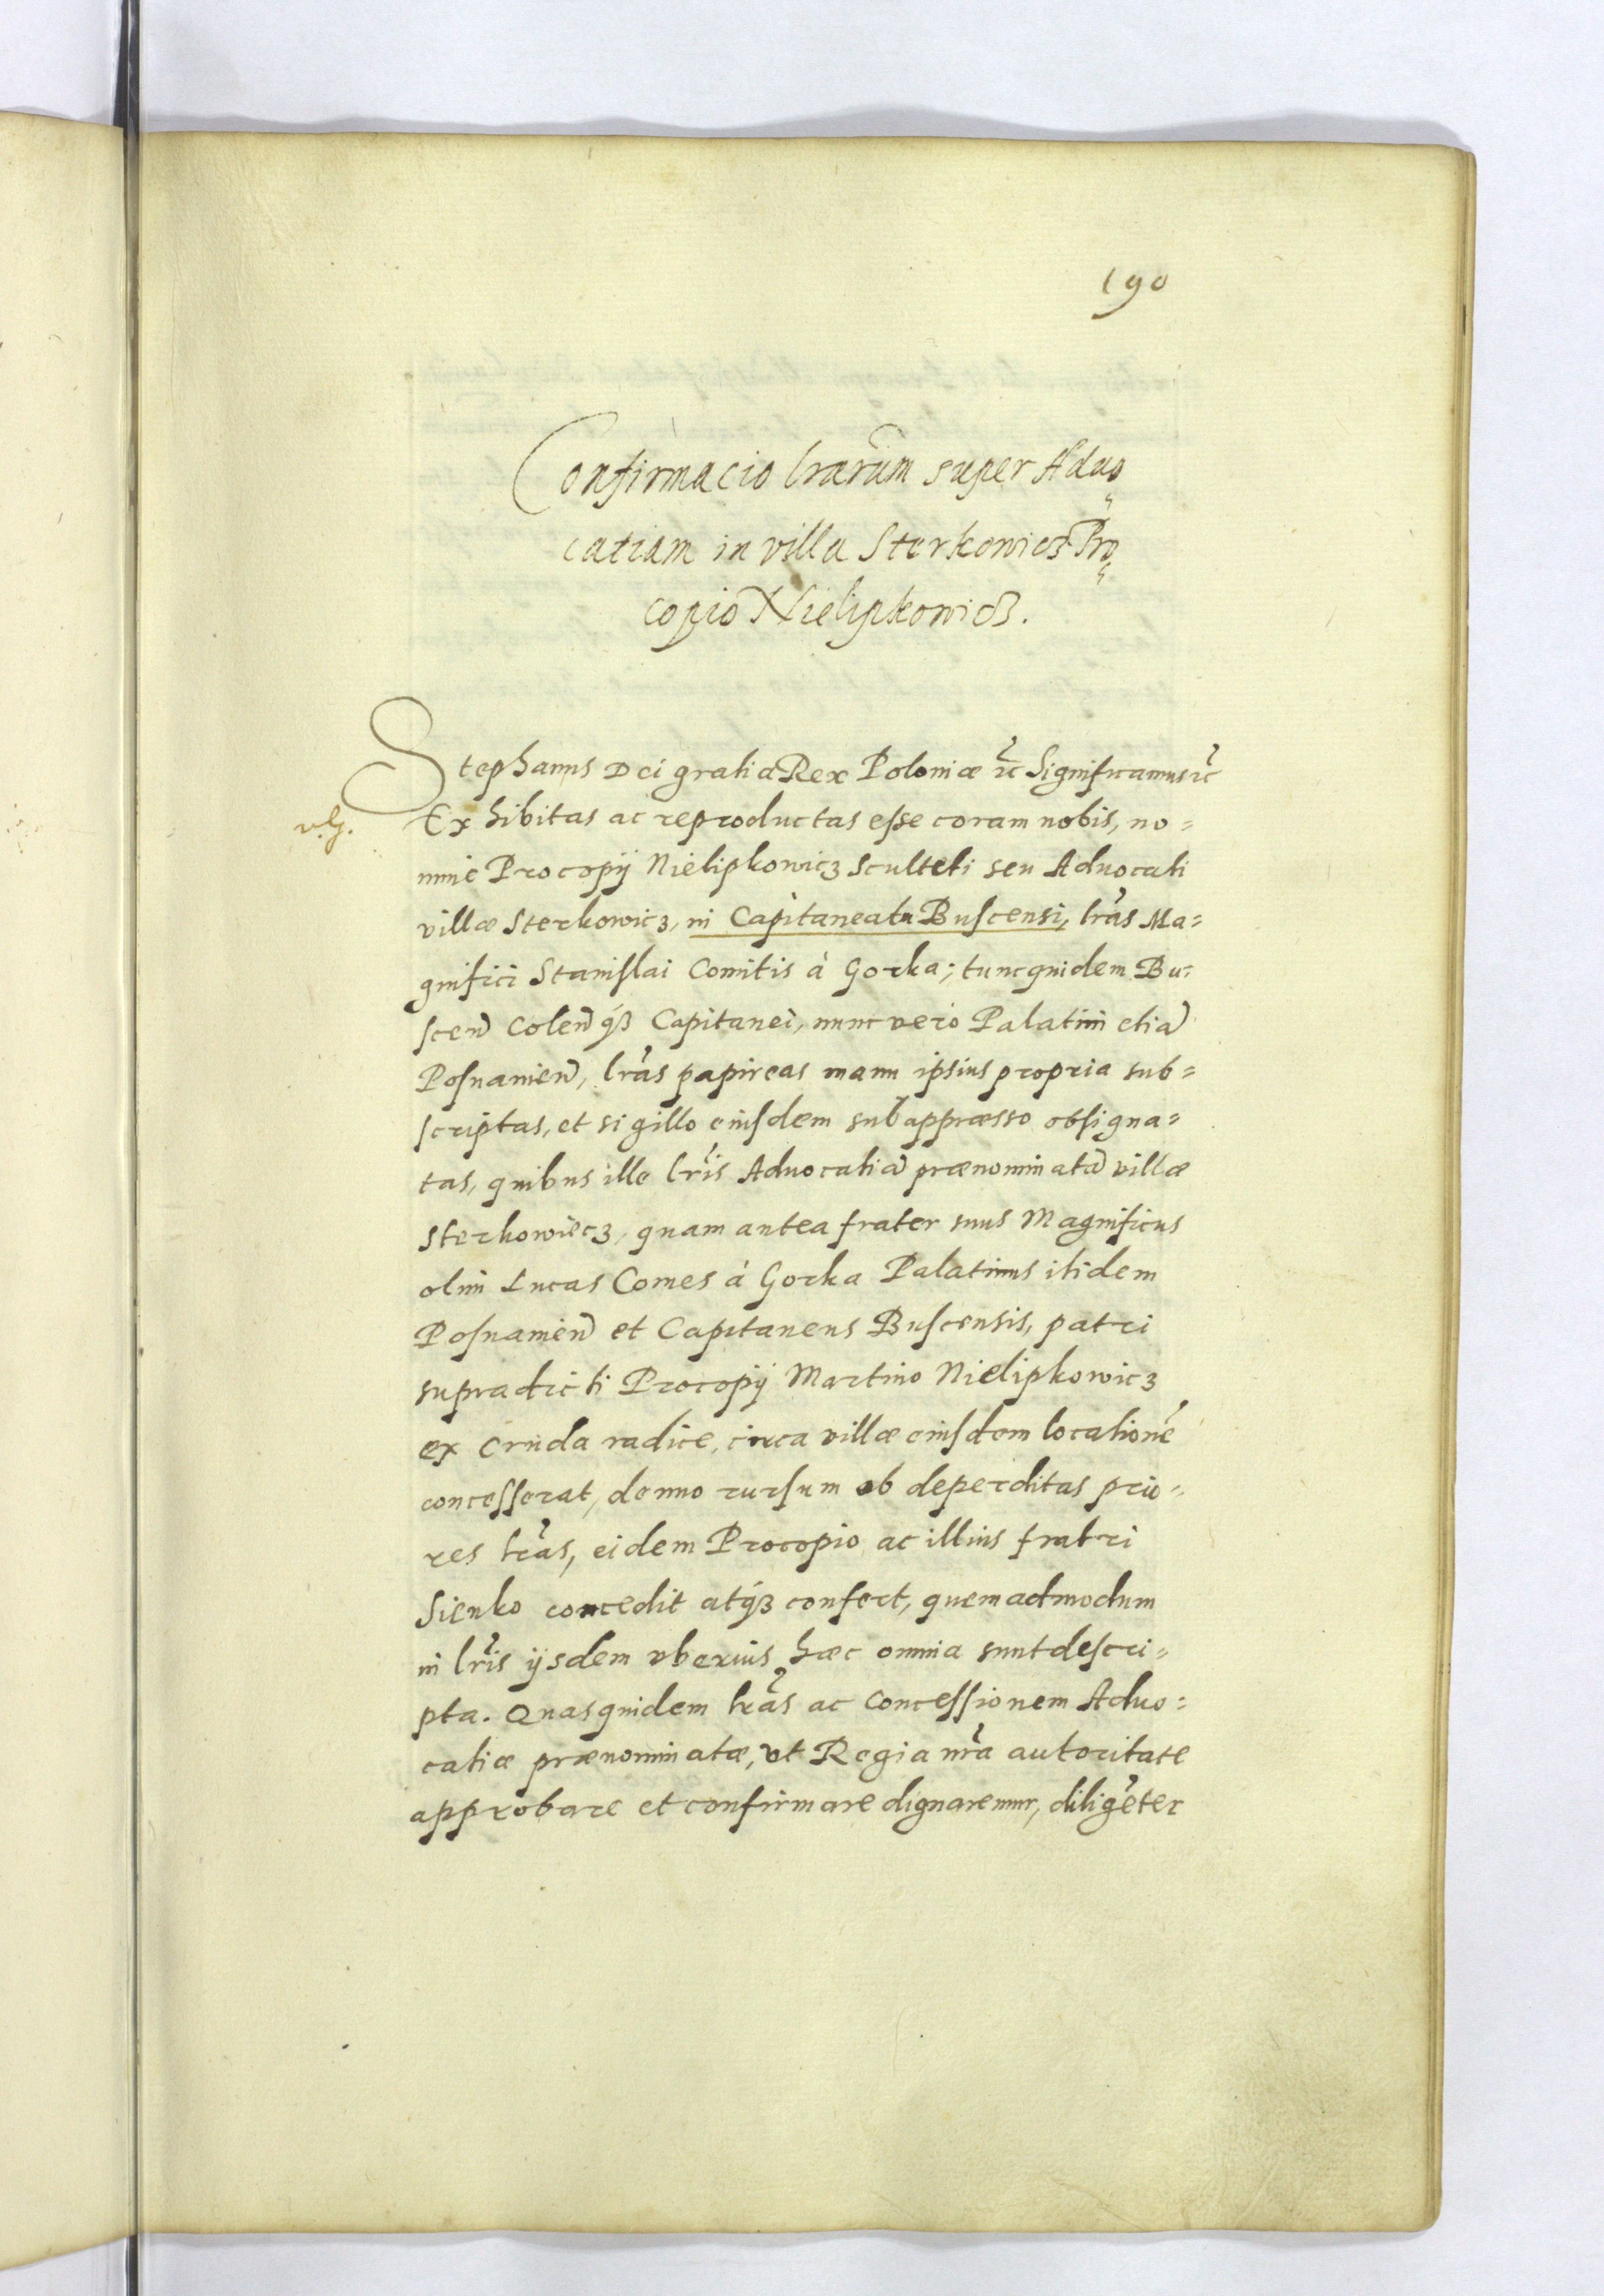 190
Confirmacio lrarum super Aduo
catiam in villa Sterkowicz Pro
copio Nielipkowicz.
Stephanus Dei gratia Rex Poloniæ etc Significamus etc
v.g.
Exhibitas ac reproductas esse coram nobis, no=
mine Procopij Nielipkowicz Sculteti seu Aduocati
villæ Sterkowicz, in Capitaneatu Buscensi, lras Ma=
gnifici Stanislai Comitis à Gorka; tunc quidem Bu=
scen̄ Colen̄ q3 Capitanei, nunc vero Palatini etiā
Posnanien̄, lras papireas manu ipsius propria sub=
scriptas, et sigillo eiusdem subappræsso obsigna=
tas, quibus ille lris Aduocatiā prænominatā villæ
Sterkowiecz, quam antea frater suus Magnificus
olim Lucas Comes à Gorka Palatinus itidem
Posnanien̄ et Capitaneus Buscensis, patri
supradicti Procopij Martino Nielipkowicz
ex cruda radice, circa villæ eiusdem locationē
concesserat, denuo rursum ob deperditas prio=
res lras, eidem Procopio ac illius fratri
Sienko concedit atq3 confert, quemadmodum
in lris ijsdem vberius hæc omnia sunt descri=
pta. Quas quidem lras ac concessionem Aduo=
catiæ prænominatæ, vt Regia nra autoritate
approbare et confirmare dignaremur, diligēter